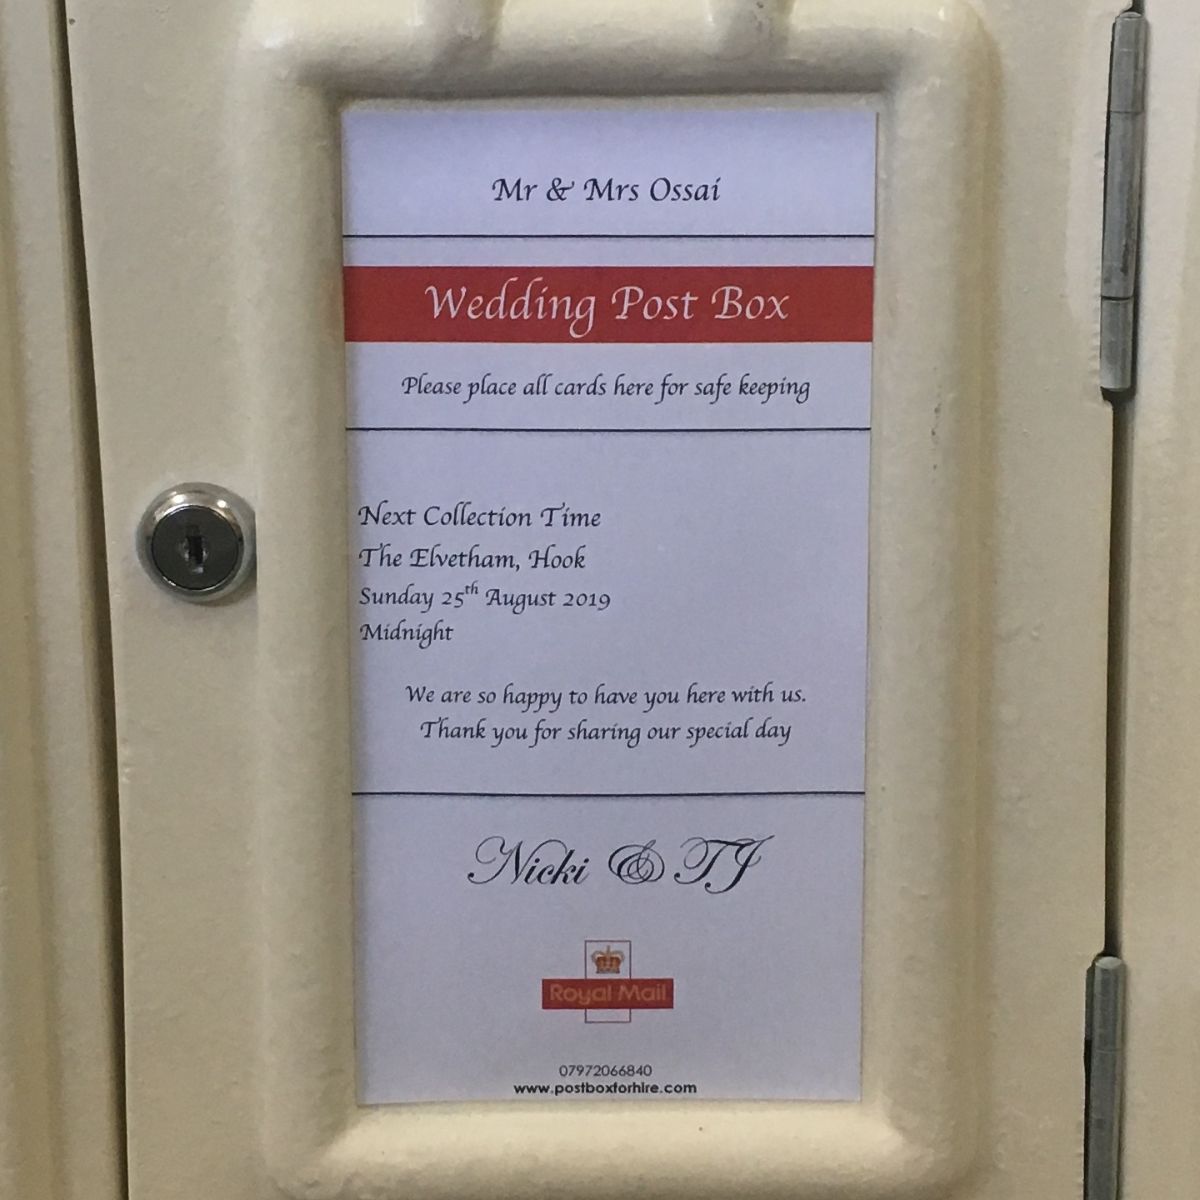 Mr & Mrs Ossai
Wedding Post Box
Please place all cards here for safe keeping
Next Collection Time
The Elvetham, Hook
Sunday 25th August 2019
Midnight
We are so happy to have you here with us.
Thank you for sharing our special day
Nicki & TJ
Royal Mail
07972066840
www.postboxforhire.com